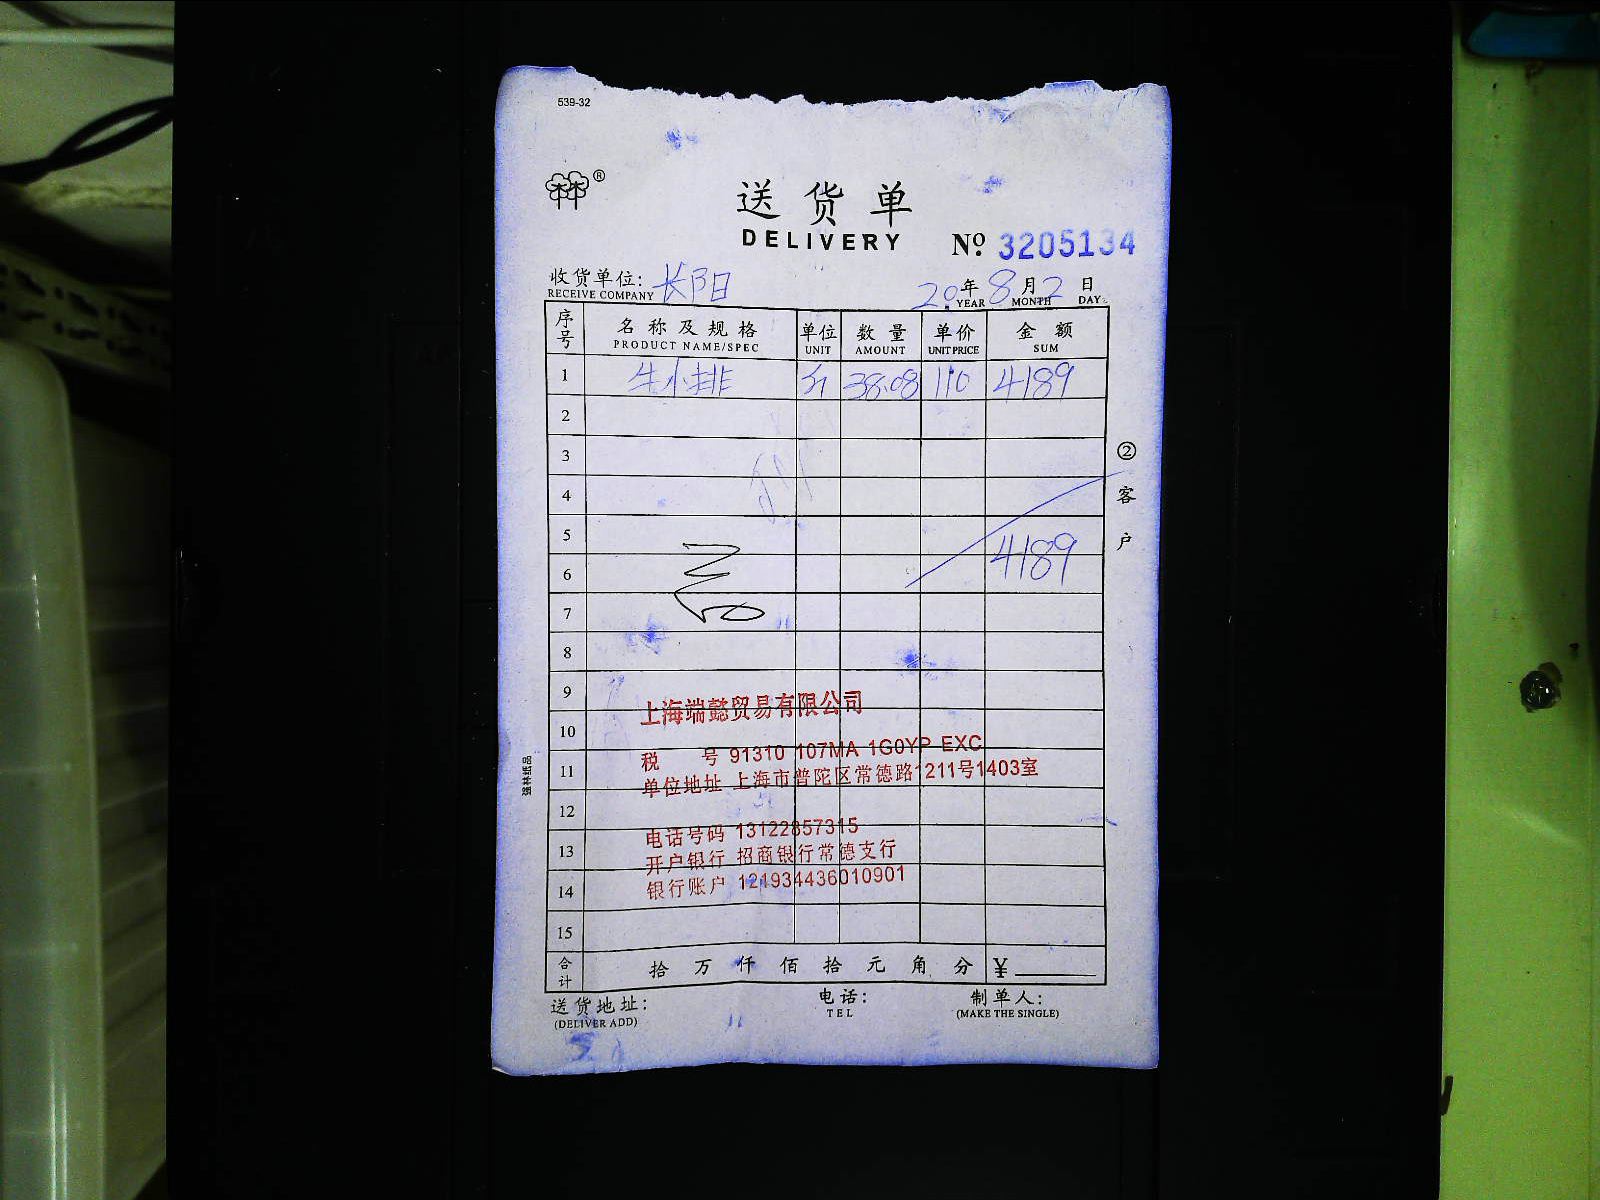 539-32
®
送货单
DELIVERY
№ 3205134
收货单位: 长阳
RECEIVE COMPANY
20年8月2日
YEAR MONTH DAY
序号 名称及规格 单位 数量 单价 金额
PRODUCT NAME/SPEC UNIT AMOUNT UNIT PRICE SUM
1 牛小排 斤 38.08 110 4189
2
3
4
5
4189
6
7
8
9
上海端懿贸易有限公司
10
税 号 91310 107MA 1G0YP EXC
11
单位地址 上海市普陀区常德路1211号1403室
12
电话号码 13122857315
13
开户银行 招商银行常德支行
14
银行账户 121934436010901
15
合计 拾 万 仟 佰 拾 元 角 分 ¥
送货地址: 电话: 制单人:
(DELIVER ADD) TEL (MAKE THE SINGLE)
②客户
强林纸品